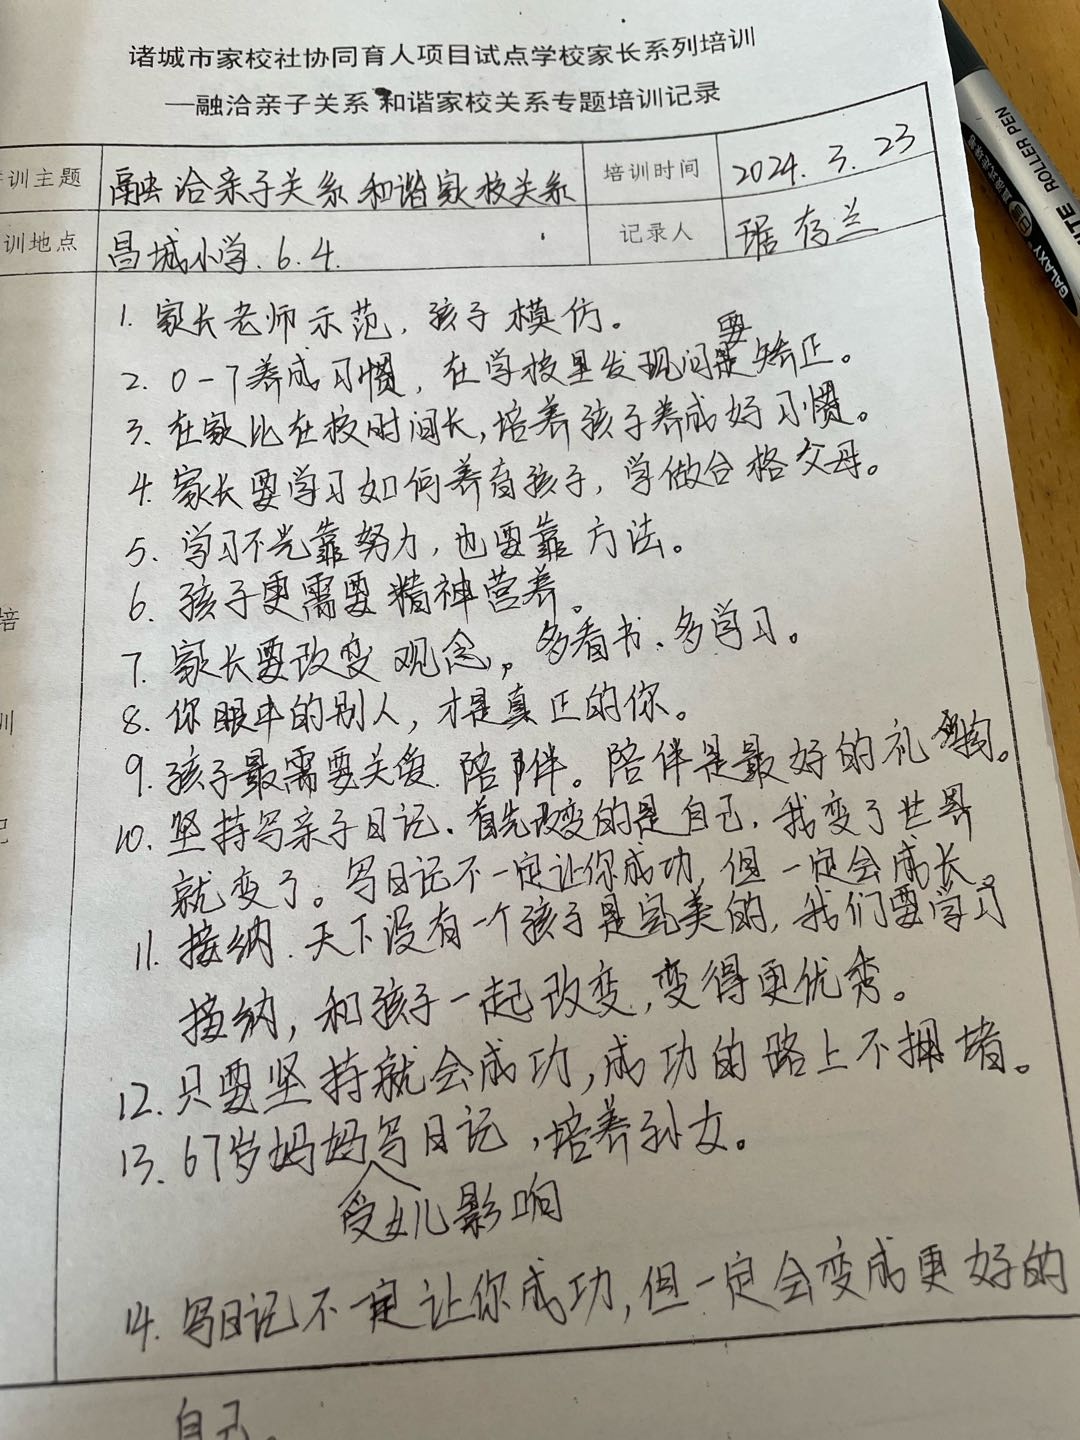 诸城市家校社协同育人项目试点学校家长系列培训
—融洽亲子关系 和谐家校关系专题培训记录
训主题 融洽亲子关系 和谐家校关系 培训时间 2024.3.23
训地点 昌城小学.6.4. 记录人 琚存兰
1. 家长老师示范，孩子模仿。
2. 0-7养成习惯，在学校里发现问题要矫正。
3. 在家比在校时间长，培养孩子养成好习惯。
4. 家长要学习如何养育孩子，学做合格父母。
5. 学习不光靠努力，也要靠方法。
6. 孩子更需要精神营养。
7. 家长要改变观念，多看书、多学习。
8. 你眼中的别人，才是真正的你。
9. 孩子最需要关爱 陪伴。陪伴是最好的礼物。
10. 坚持写亲子日记.首先改变的是自己.我变了世界
就变了。写日记不一定让你成功，但一定会成长。
11. 接纳.天下没有一个孩子是完美的，我们要学习
接纳，和孩子一起改变，变得更优秀。
12. 只要坚持就会成功，成功的路上不拥堵。
13. 67岁妈妈写日记，培养孙女。
受女儿影响
14. 写日记不一定让你成功，但一定会变成更好的
自己。
培
训
记
GALAXY
WRITE ROLLER PEN